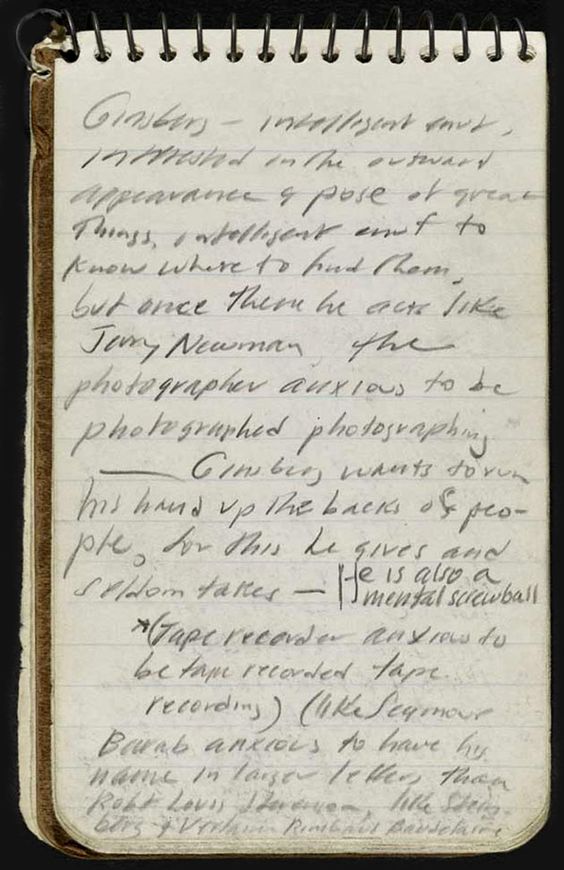 Ginsberg — intelligent enuf,
interested in the outward
appearance & pose of great
things, intelligent enuf to
know where to find them,
but once there he acts like
Jerry Newman, the
photographer anxious to be
photographed photographing
— Ginsberg wants to run
his hand up the backs of peo-
ple, for this he gives and
seldom takes — He is also a
mental screwball
*(Tape recorder anxious to
be tape recorded tape
recording) (like Seymour
Barab anxious to have his
name in larger letters than
Robt Louis Stevenson, like Steinberg
& Verlaine Rimbaud Baudelaire